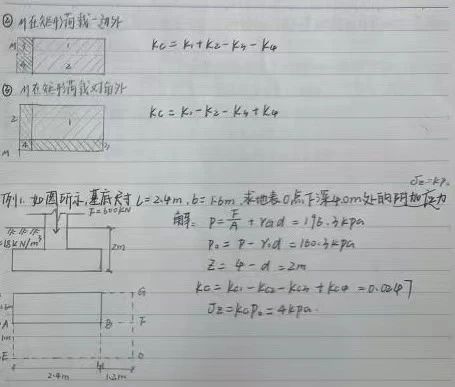 ④ M在矩形荷载一边外
M 3 1
4 2
Kc = K₁+K₂-K₃-K₄
⑤ M在矩形荷载对角外
2 1
M
Kc = K₁-K₂-K₃+K₄
σz=KP₀
例1. 如图所示,基底尺寸 L=2.4m, b=1.6m. 求地表O点下深4.0m处的附加应力
F=600kN
=18kN/m³
2m
解: P= F/A + γGd = 196.3kPa
P₀ = P - γ₀d = 160.3kPa
Z = 4-d = 2m
Kc = Kc₁-Kc₂-Kc₃+Kc₄ = 0.0247
σz=KcP₀ = 4kPa.
G
A B F
E O
2.4m 1.2m